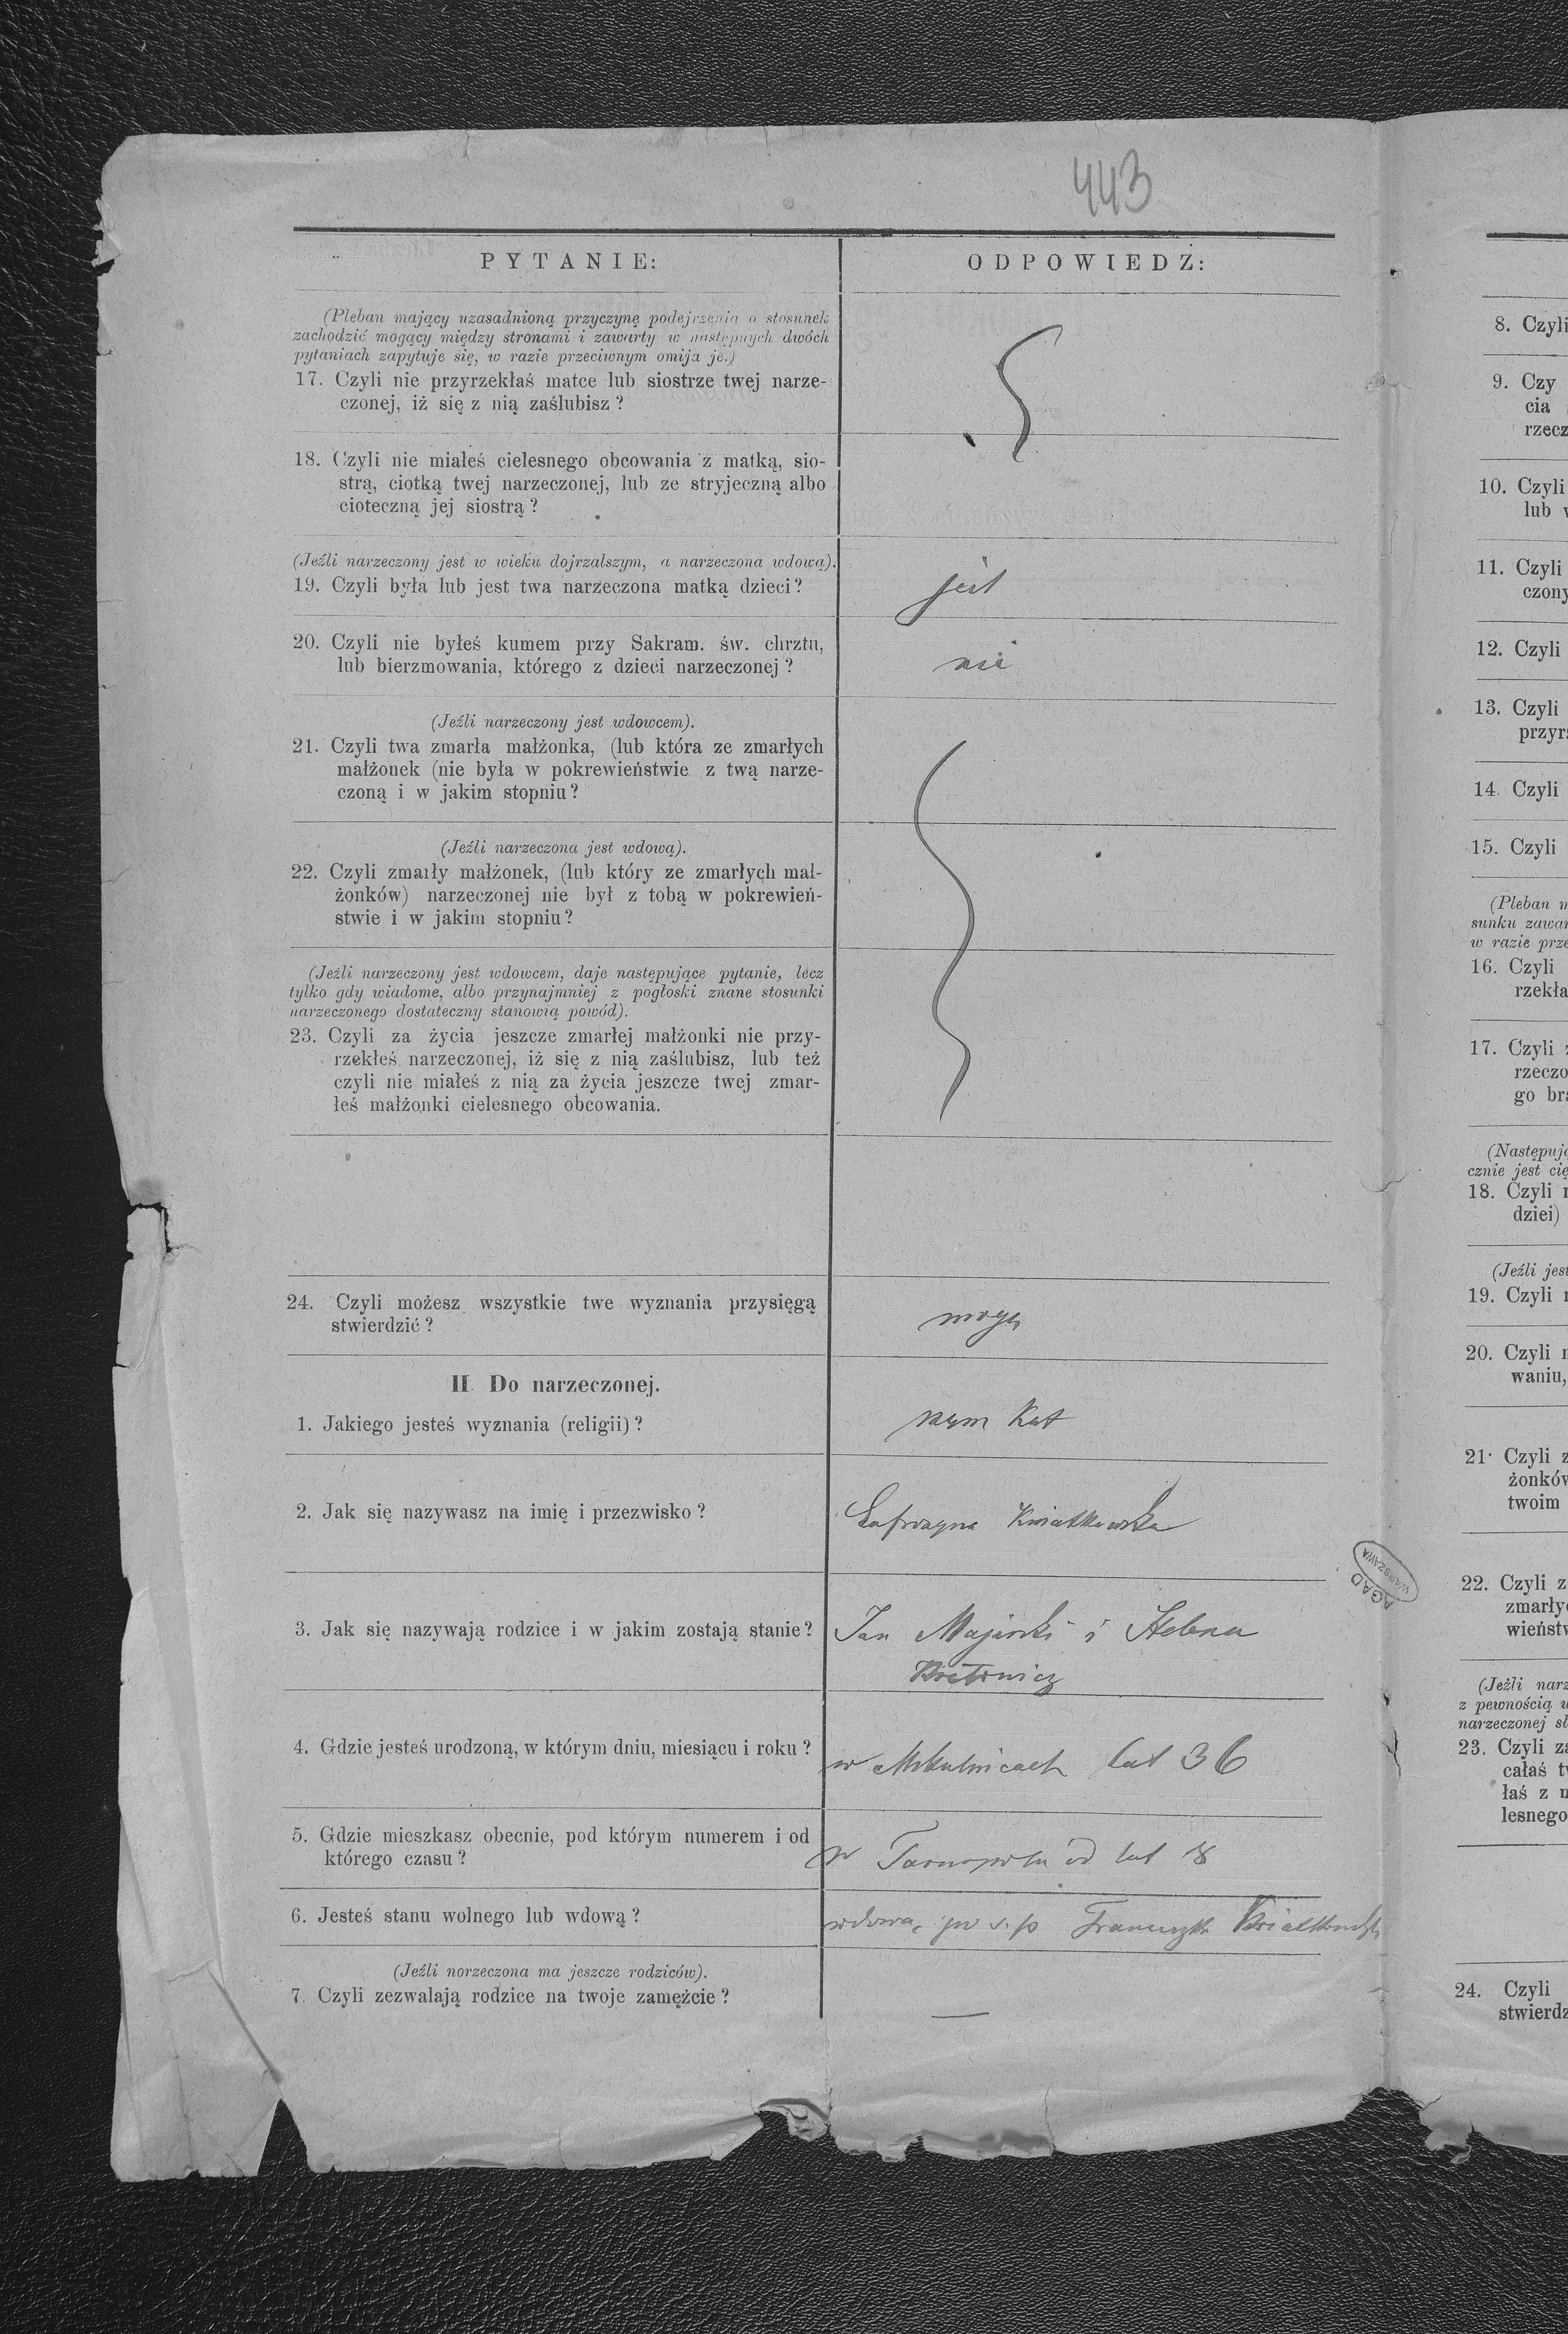 443
PYTANIE:
ODPOWIEDŹ:
(Pleban mający uzasadnioną przyczynę podejrzenia o stosunek
zachodzić mogący między stronami i zawarty w następnych dwóch
pytaniach zapytuje się, w razie przeciwnym omija je.)
17. Czyli nie przyrzekłaś matce lub siostrze twej narze-
czonej, iż się z nią zaślubisz?
18. Czyli nie miałeś cielesnego obcowania z matką, sio-
strą, ciotką twej narzeczonej, lub ze stryjeczną albo
cioteczną jej siostrą?
(Jeźli narzeczony jest w wieku dojrzalszym, a narzeczona wdową).
19. Czyli była lub jest twa narzeczona matką dzieci?
jest
20. Czyli nie byłeś kumem przy Sakram. św. chrztu,
lub bierzmowania, którego z dzieci narzeczonej?
nie
(Jeźli narzeczony jest wdowcem).
21. Czyli twa zmarła małżonka, (lub która ze zmarłych
małżonek (nie była w pokrewieństwie z twą narze-
czoną i w jakim stopniu?
(Jeźli narzeczona jest wdową).
22. Czyli zmarły małżonek, (lub który ze zmarłych mał-
żonków) narzeczonej nie był z tobą w pokrewień-
stwie i w jakim stopniu?
(Jeźli narzeczony jest wdowcem, daje następujące pytanie, lecz
tylko gdy wiadome, albo przynajmniej z pogłoski znane stosunki
narzeczonego dostateczny stanowią powód).
23. Czyli za życia jeszcze zmarłej małżonki nie przy-
rzekłeś narzeczonej, iż się z nią zaślubisz, lub też
czyli nie miałeś z nią za życia jeszcze twej zmar-
łeś małżonki cielesnego obcowania.
24. Czyli możesz wszystkie twe wyznania przysięgą
stwierdzić?
mogę
II. Do narzeczonej.
1. Jakiego jesteś wyznania (religii)?
rzym Kat
2. Jak się nazywasz na imię i przezwisko?
Kwiatkowska
3. Jak się nazywają rodzice i w jakim zostają stanie?
Jan Majewski i Helena
4. Gdzie jesteś urodzoną, w którym dniu, miesiącu i roku?
w Mikulińcach lat 36
5. Gdzie mieszkasz obecnie, pod którym numerem i od
którego czasu?
w Tarnopolu od lat 18
6. Jesteś stanu wolnego lub wdową?
wdowa, po ś.p
(Jeźli norzeczona ma jeszcze rodziców).
7. Czyli zezwalają rodzice na twoje zamężcie?
—
AGAD
WARSZAWA
8. Czyli
9. Czy
cia
rzecz
10. Czyli
lub
11. Czyli
czony
12. Czyli
13. Czyli
przyr
14. Czyli
15. Czyli
(Pleban
sunku zawar
w razie prze
16. Czyli
rzekła
17. Czyli
rzeczo
go bra
(Następuj
cznie jest cię
18. Czyli
dziei)
(Jeźli jest
19. Czyli
20. Czyli
waniu,
21. Czyli z
żonków
twoim
22. Czyli z
zmarły
wieńst
(Jeźli narz
z pewnością
narzeczonej
23. Czyli za
całaś
łaś z
lesnego
24. Czyli
stwierdz